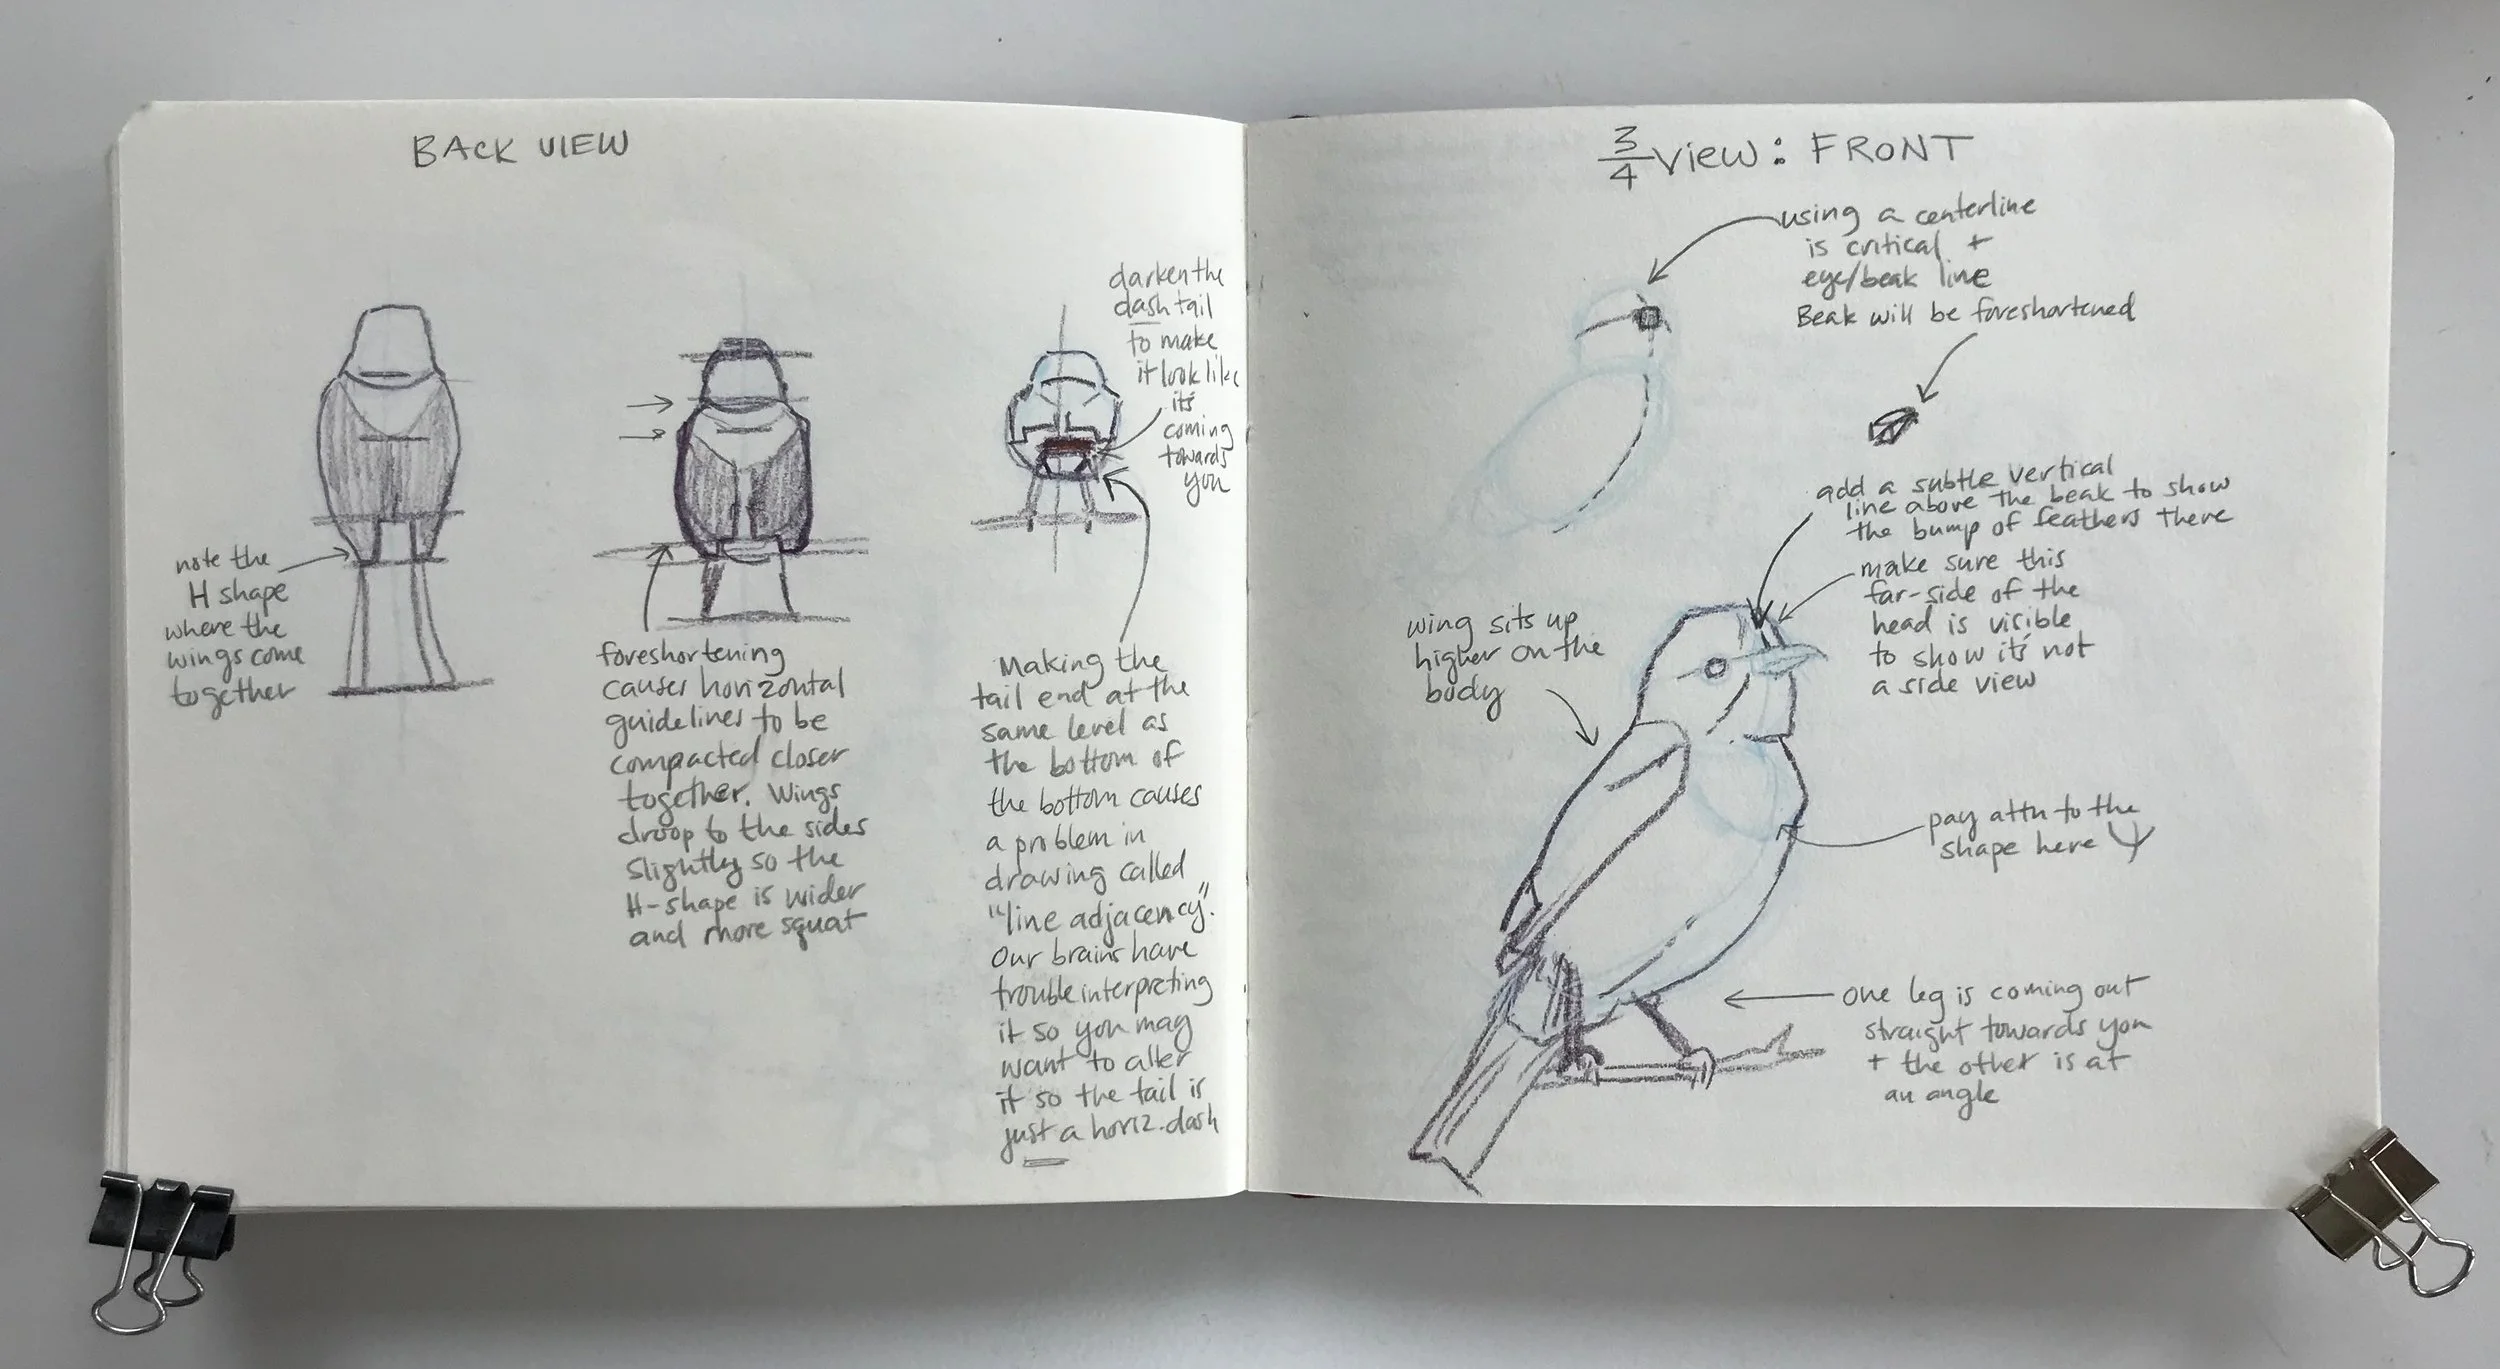 BACK VIEW
note the
H shape
where the
wings come
together
foreshortening
causes horizontal
guidelines to be
compacted closer
together. Wings
droop to the sides
slightly so the
H-shape is wider
and more squat
darken the
dash tail
to make
it look like
it's
coming
towards
you
Making the
tail end at the
same level as
the bottom of
the bottom causes
a problem in
drawing called
"line adjacency".
Our brains have
trouble interpreting
it so you may
want to alter
it so the tail is
just a horiz. dash
3/4 VIEW: FRONT
using a centerline
is critical +
eye/beak line
Beak will be foreshortened
add a subtle vertical
line above the beak to show
the bump of feathers there
make sure this
far-side of the
head is visible
to show it's not
a side view
wing sits up
higher on the
body
pay attn to the
shape here
one leg is coming out
straight towards you
+ the other is at
an angle